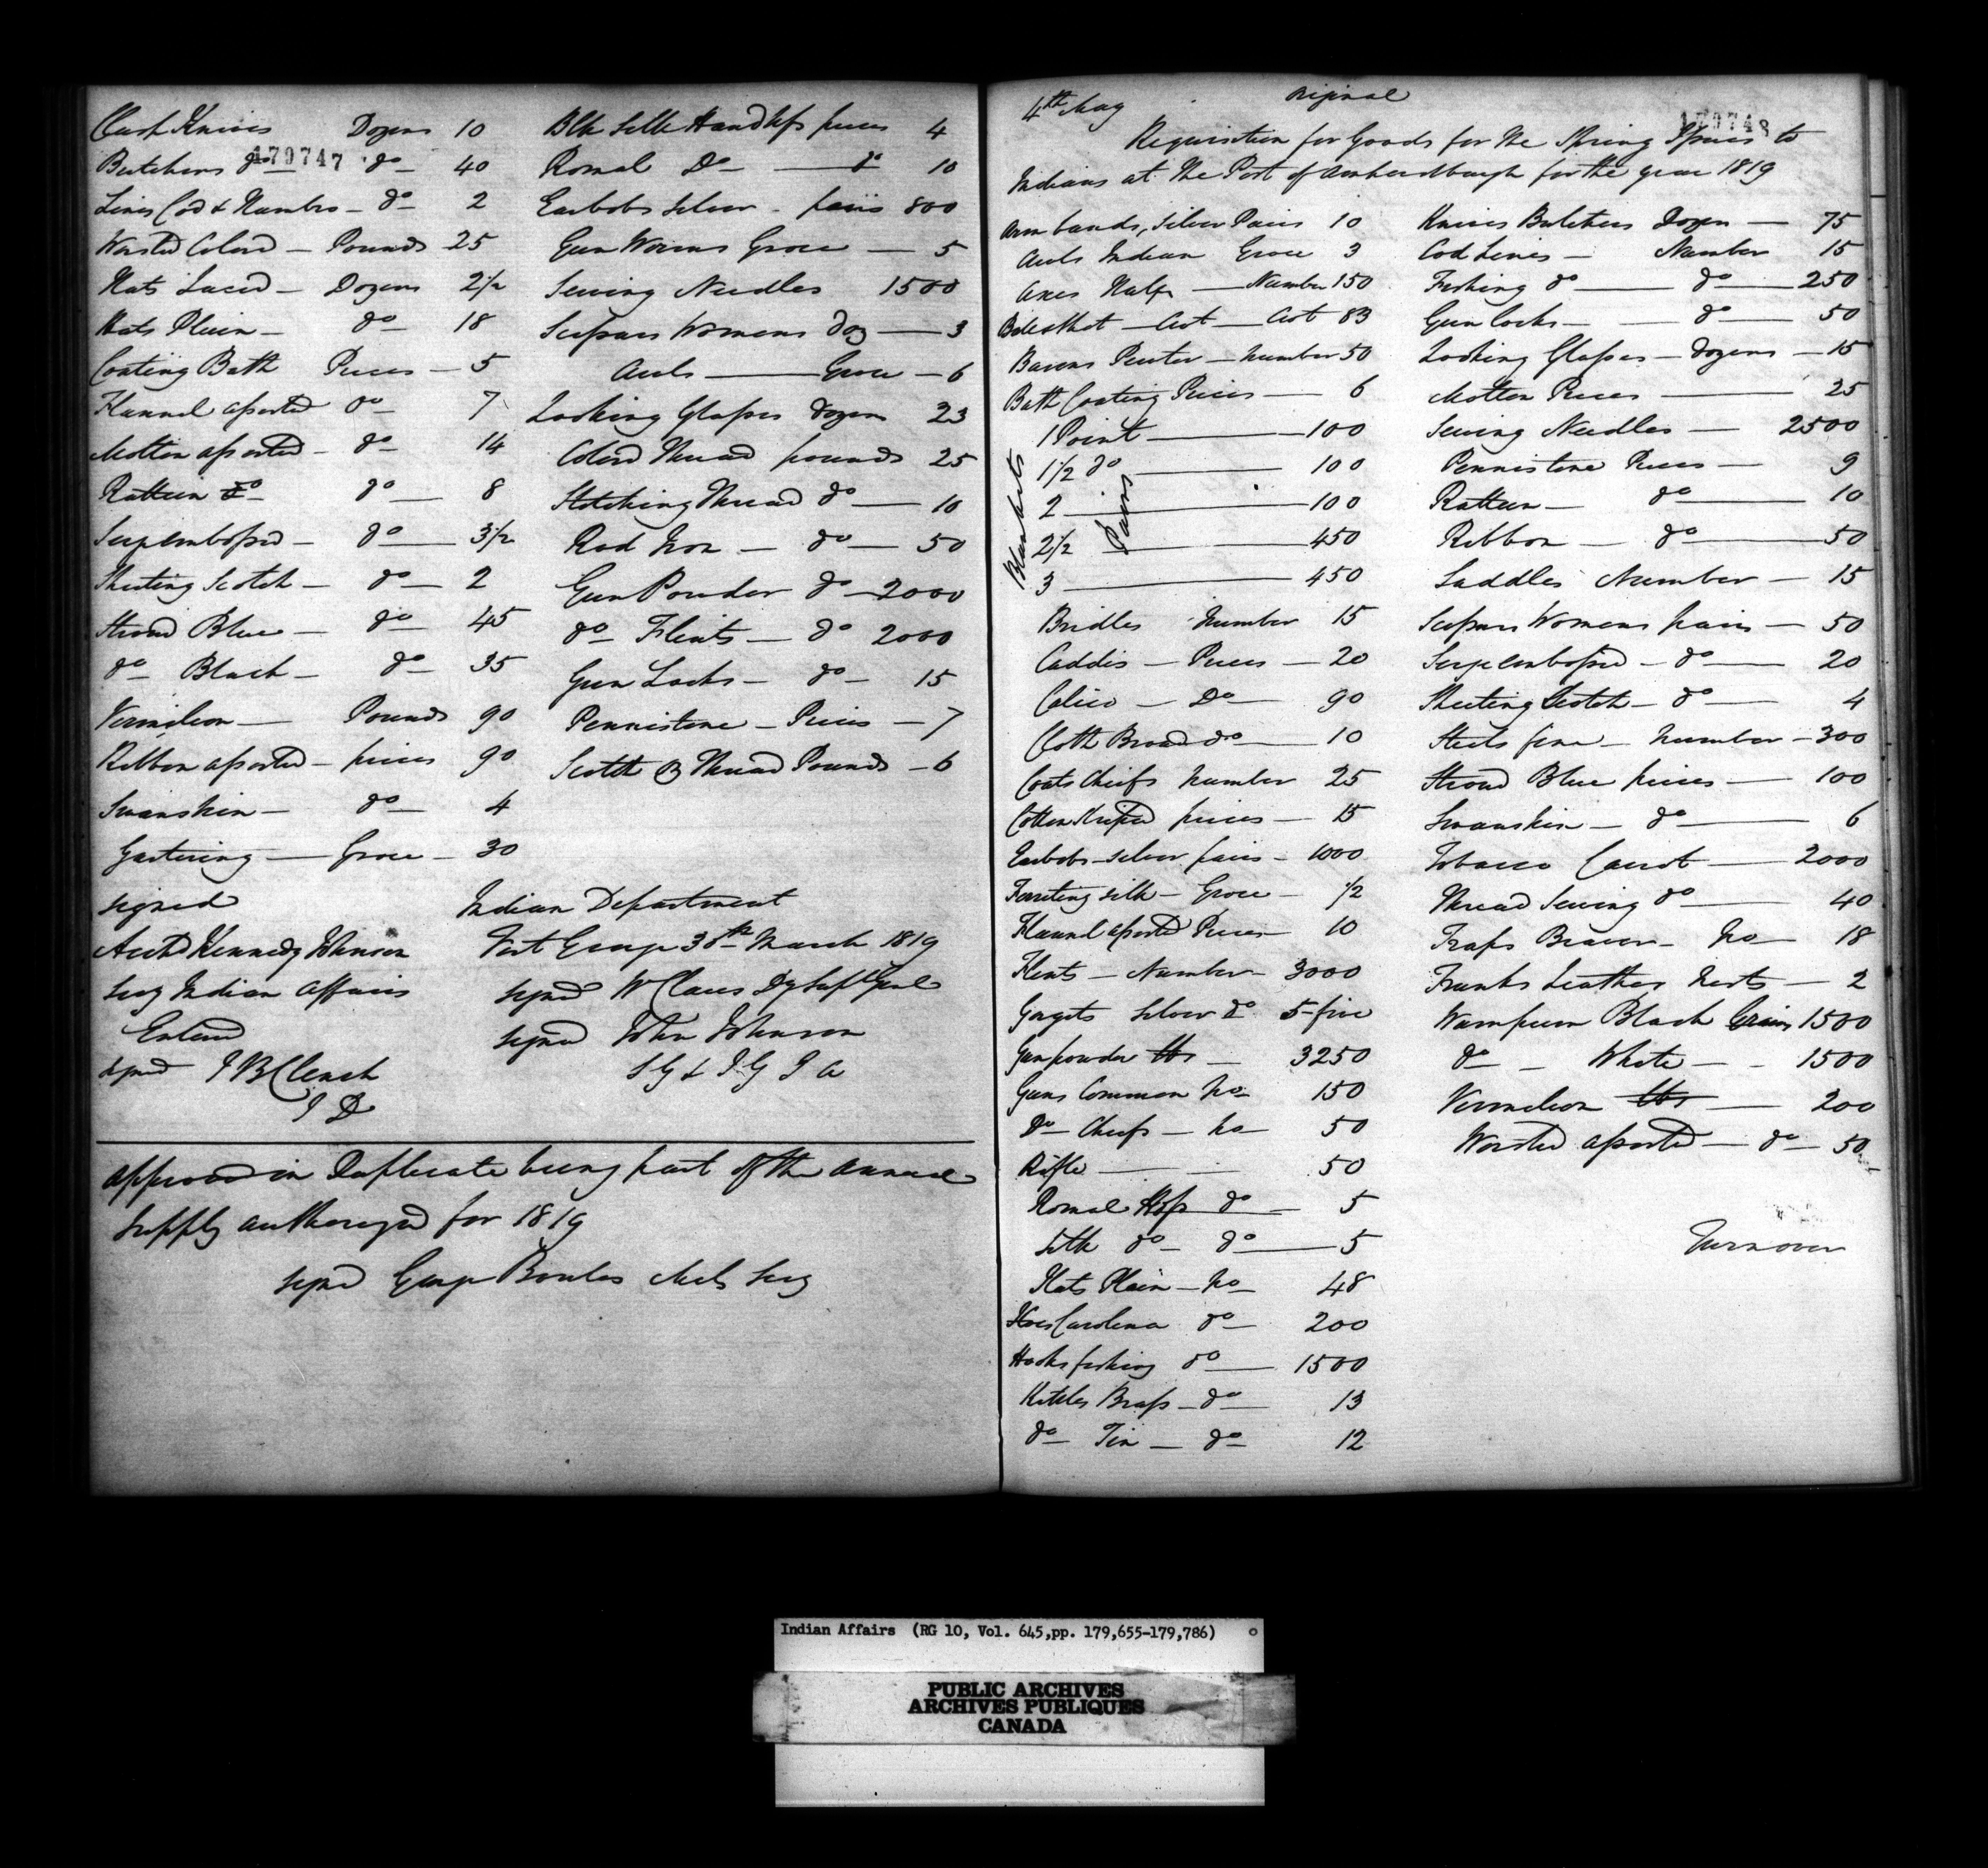 179747
Clasp Knives Dozens 10
Butchers do do 40
Lines Cod & Number do 2
Worsted Colord Pounds 25
Hats Laced Dozens 2 1/2
Hats Plain do 18
Coating Bath Pieces 5
Flannel assorted do 7
Molton assorted do 14
Ratteen do do 8
Serge embossed do 3 1/2
Sheeting Scotch do 2
Stroud Blue do 45
do Black do 35
Vermilion Pounds 90
Ribbon assorted pieces 90
Swanskin do 4
Gartering Groce 30
Blk Silk Handkfs pieces 4
Romal Do do 10
Earbobs Silver pairs 800
Gun Worms Groce 5
Sewing Needles 1500
Scissars Womens Doz 3
Awls Groce 6
Looking Glasses dozens 23
Colord Thread pounds 25
Stitching Thread do 10
Rod Iron do 50
Gun Powder do 2000
do Flints do 2000
Gun Locks do 15
Pennistone Pieces 7
Scotch Thread Pounds 6
signed
Kennedy Johnson
Secy Indian Affairs
Entered
signd J B Clench
I D
Indian Department
Fort George 30th March 1819
signed W Claus Dy Supt Genl
signed John Johnson
S G & I G I A
approved in Duplicate being part of the annual
supply authorized for 1819
signd George Bowles Mily Secy
179748
4th May original
Requisition for Goods for the Spring Issues to
Indians at the Post of Amherstburgh for the year 1819
Arm bands, Silver Pairs 10
Awls Indian Groce 3
Axes Half Number 150
Cwt 83
Basons Pewter number 50
Bath Coating Pieces 6
Blankets
Pairs
1 Point 100
1 1/2 do 100
2 100
2 1/2 450
3 450
Bridles number 15
Caddis Pieces 20
Calico Do 90
Cloth Broad do 10
Coats Chiefs number 25
Cotton Striped pieces 15
Earbobs silver pairs 1000
Ferreting silk Groce 1/2
Flannel assorted Pieces 10
Flints Number 3000
Gorgets silver do 5 five
Gunpowder lbs 3250
Guns Common no 150
Do Chiefs no 50
Rifle 50
Romal Hkfs do 5
Silk do do 5
Hats Plain no 48
Hoes Carolina do 200
Hooks fishing do 1500
Kettles Brass do 13
do Tin do 12
Knives Butchers Dozen 75
Cod Lines Number 15
Fishing do do 250
Gun Locks do 50
Looking Glasses dozens 15
Molton Pieces 25
Sewing Needles 2500
Pennistone Pieces 9
Ratteen do 10
Ribbon do 50
Saddles Number 15
Scissars Womens pairs 50
Serge embossed do 20
Sheeting Scotch do 4
Steels fire number 300
Stroud Blue pieces 100
Swanskin do 6
Tobacco Carrot 2000
Thread Sewing do 40
Traps Beaver no 18
Trunks Leather Nests 2
Wampum Black Grains 1500
do White 1500
Vermilion lbs 200
Worsted assorted do 50
Turn over
Indian Affairs (RG 10, Vol. 645,pp. 179,655-179,786)
PUBLIC ARCHIVES
ARCHIVES PUBLIQUES
CANADA